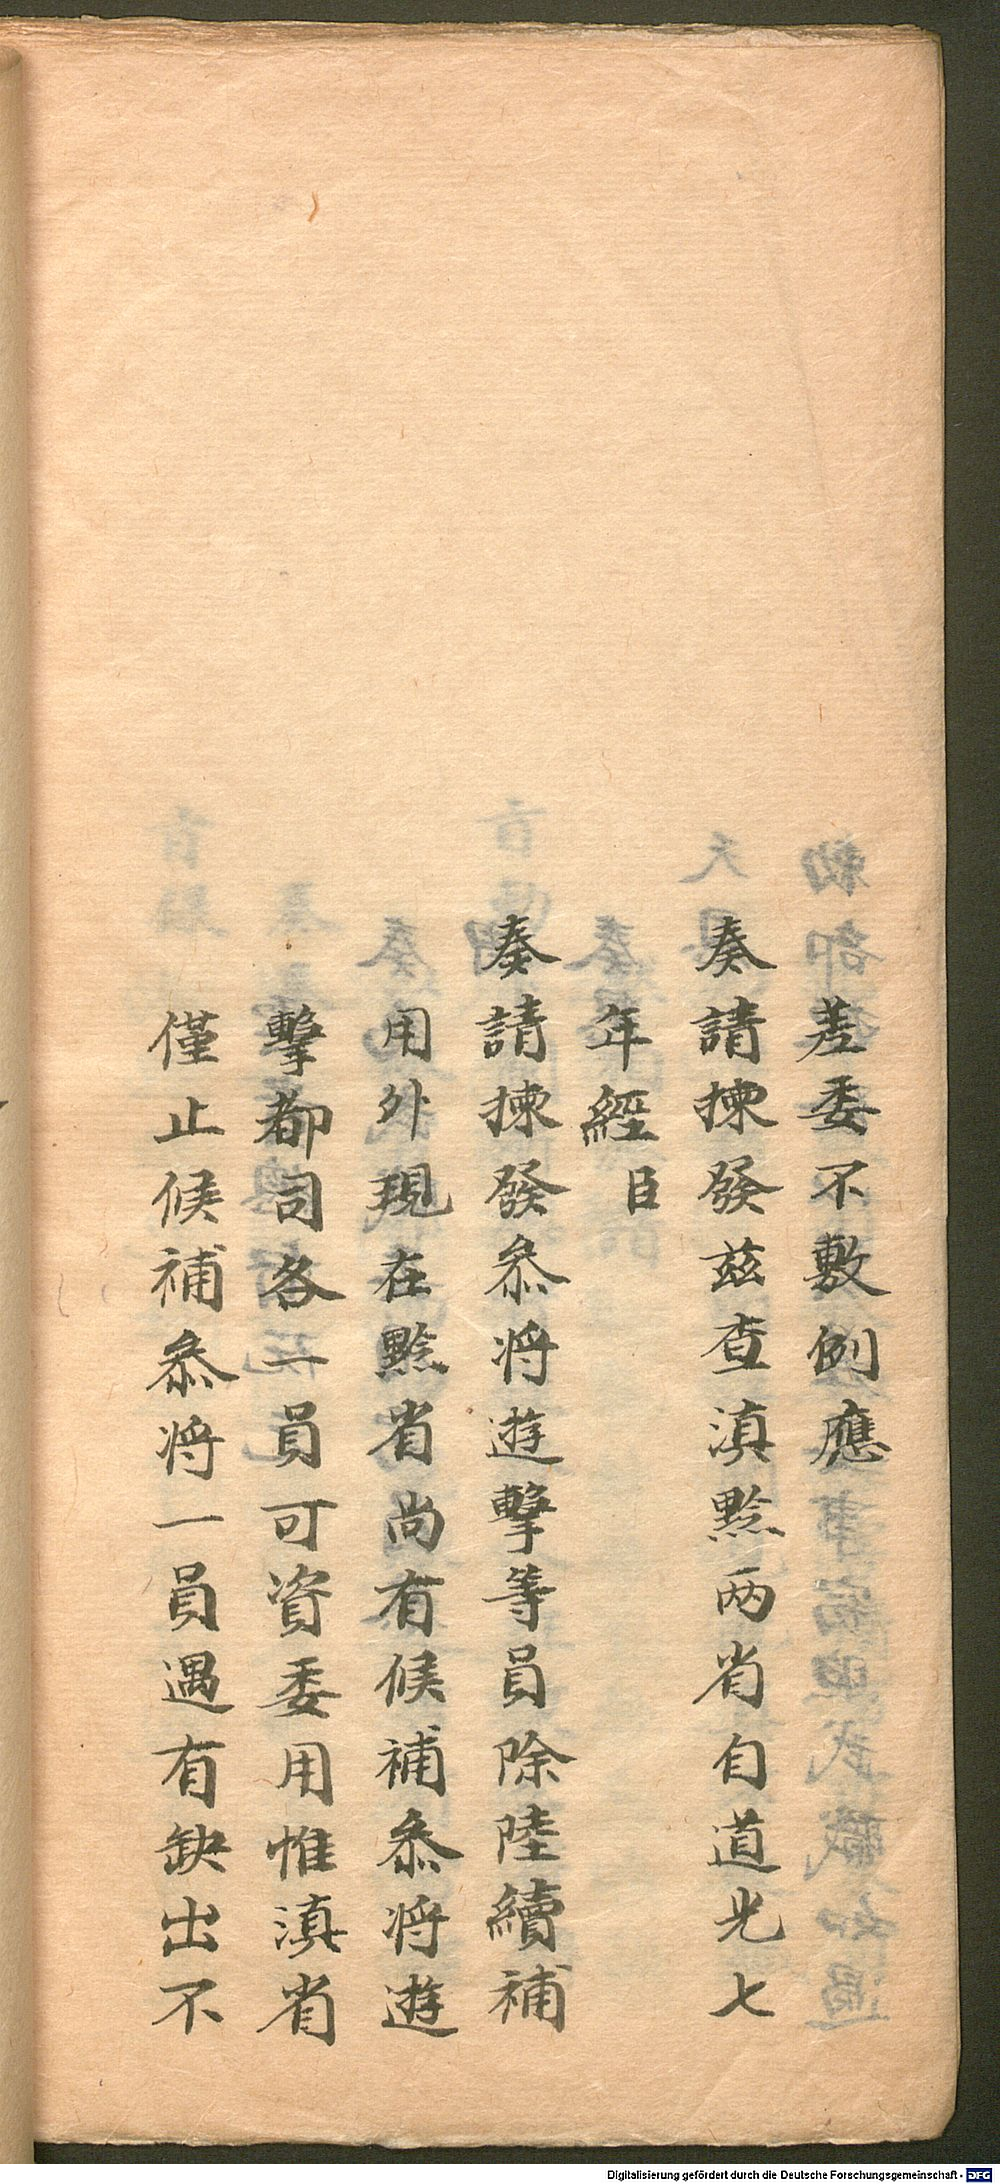 差委不敷例應
奏請揀發茲查滇黔两省自道光七
年經臣
奏請揀發叅将遊擊等員除陸續補
用外現在黔省尚有候補叅将遊
擊都司各一員可資委用惟滇省
僅止候補叅将一員遇有缺出不
Digitalisierung gefördert durch die Deutsche Forschungsgemeinschaft - DFG